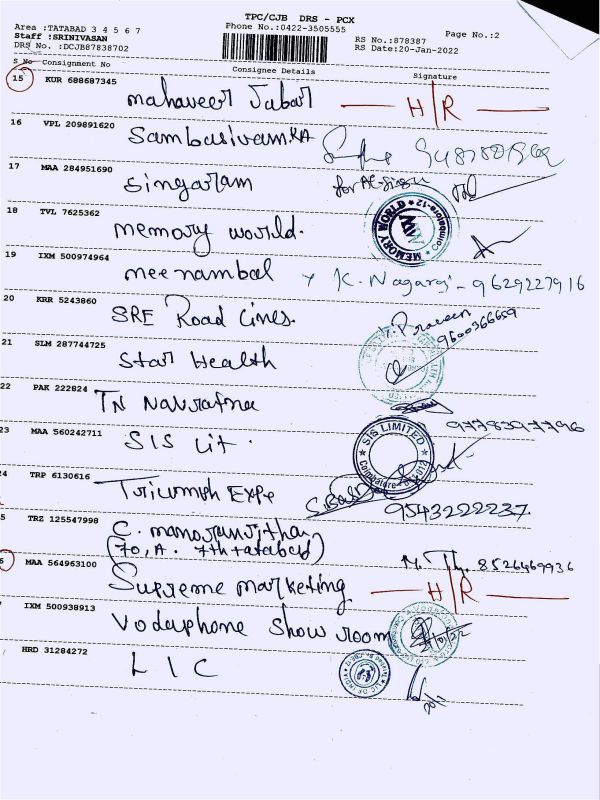 TPC/CJB DRS - PCX
Area :TATABAD 3 4 5 6 7
Phone No.:0422-3505555
Page No.:2
Staff :SRINIVASAN
RS No.:878387
DRS No. :DCJB87838702
RS Date:20-Jan-2022
S No Consignment No Consignee Details Signature
15 KUR 688687345
mahaveer Jabar H/R
16 VPL 209891620
Sambasivam.RA
17 MAA 284951690
Singaram
18 TVL 7625362
memory world.
MEMORY WORLD
MW
Coimbatore-12
19 IXM 500974964
meenambal K. Nagaraj - 9629227916
20 KRR 5243860
SRE Road Lines. Praveen
9600366659
21 SLM 287744725
Star Health
22 PAK 222824
TN Navratna
9778397796
23 MAA 560242711
SIS Lit.
SIS LIMITED
Coimbatore
24 TRP 6130616
Triumph Expe
9543222237
5 TRZ 125547998
C. manoranjitham
(70, A. 7th tatabad)
8526469936
6 MAA 564963100
Supreme marketing H/R
IXM 500938913
Vodaphone Show room
HRD 31284272
LIC
LIC OF INDIA